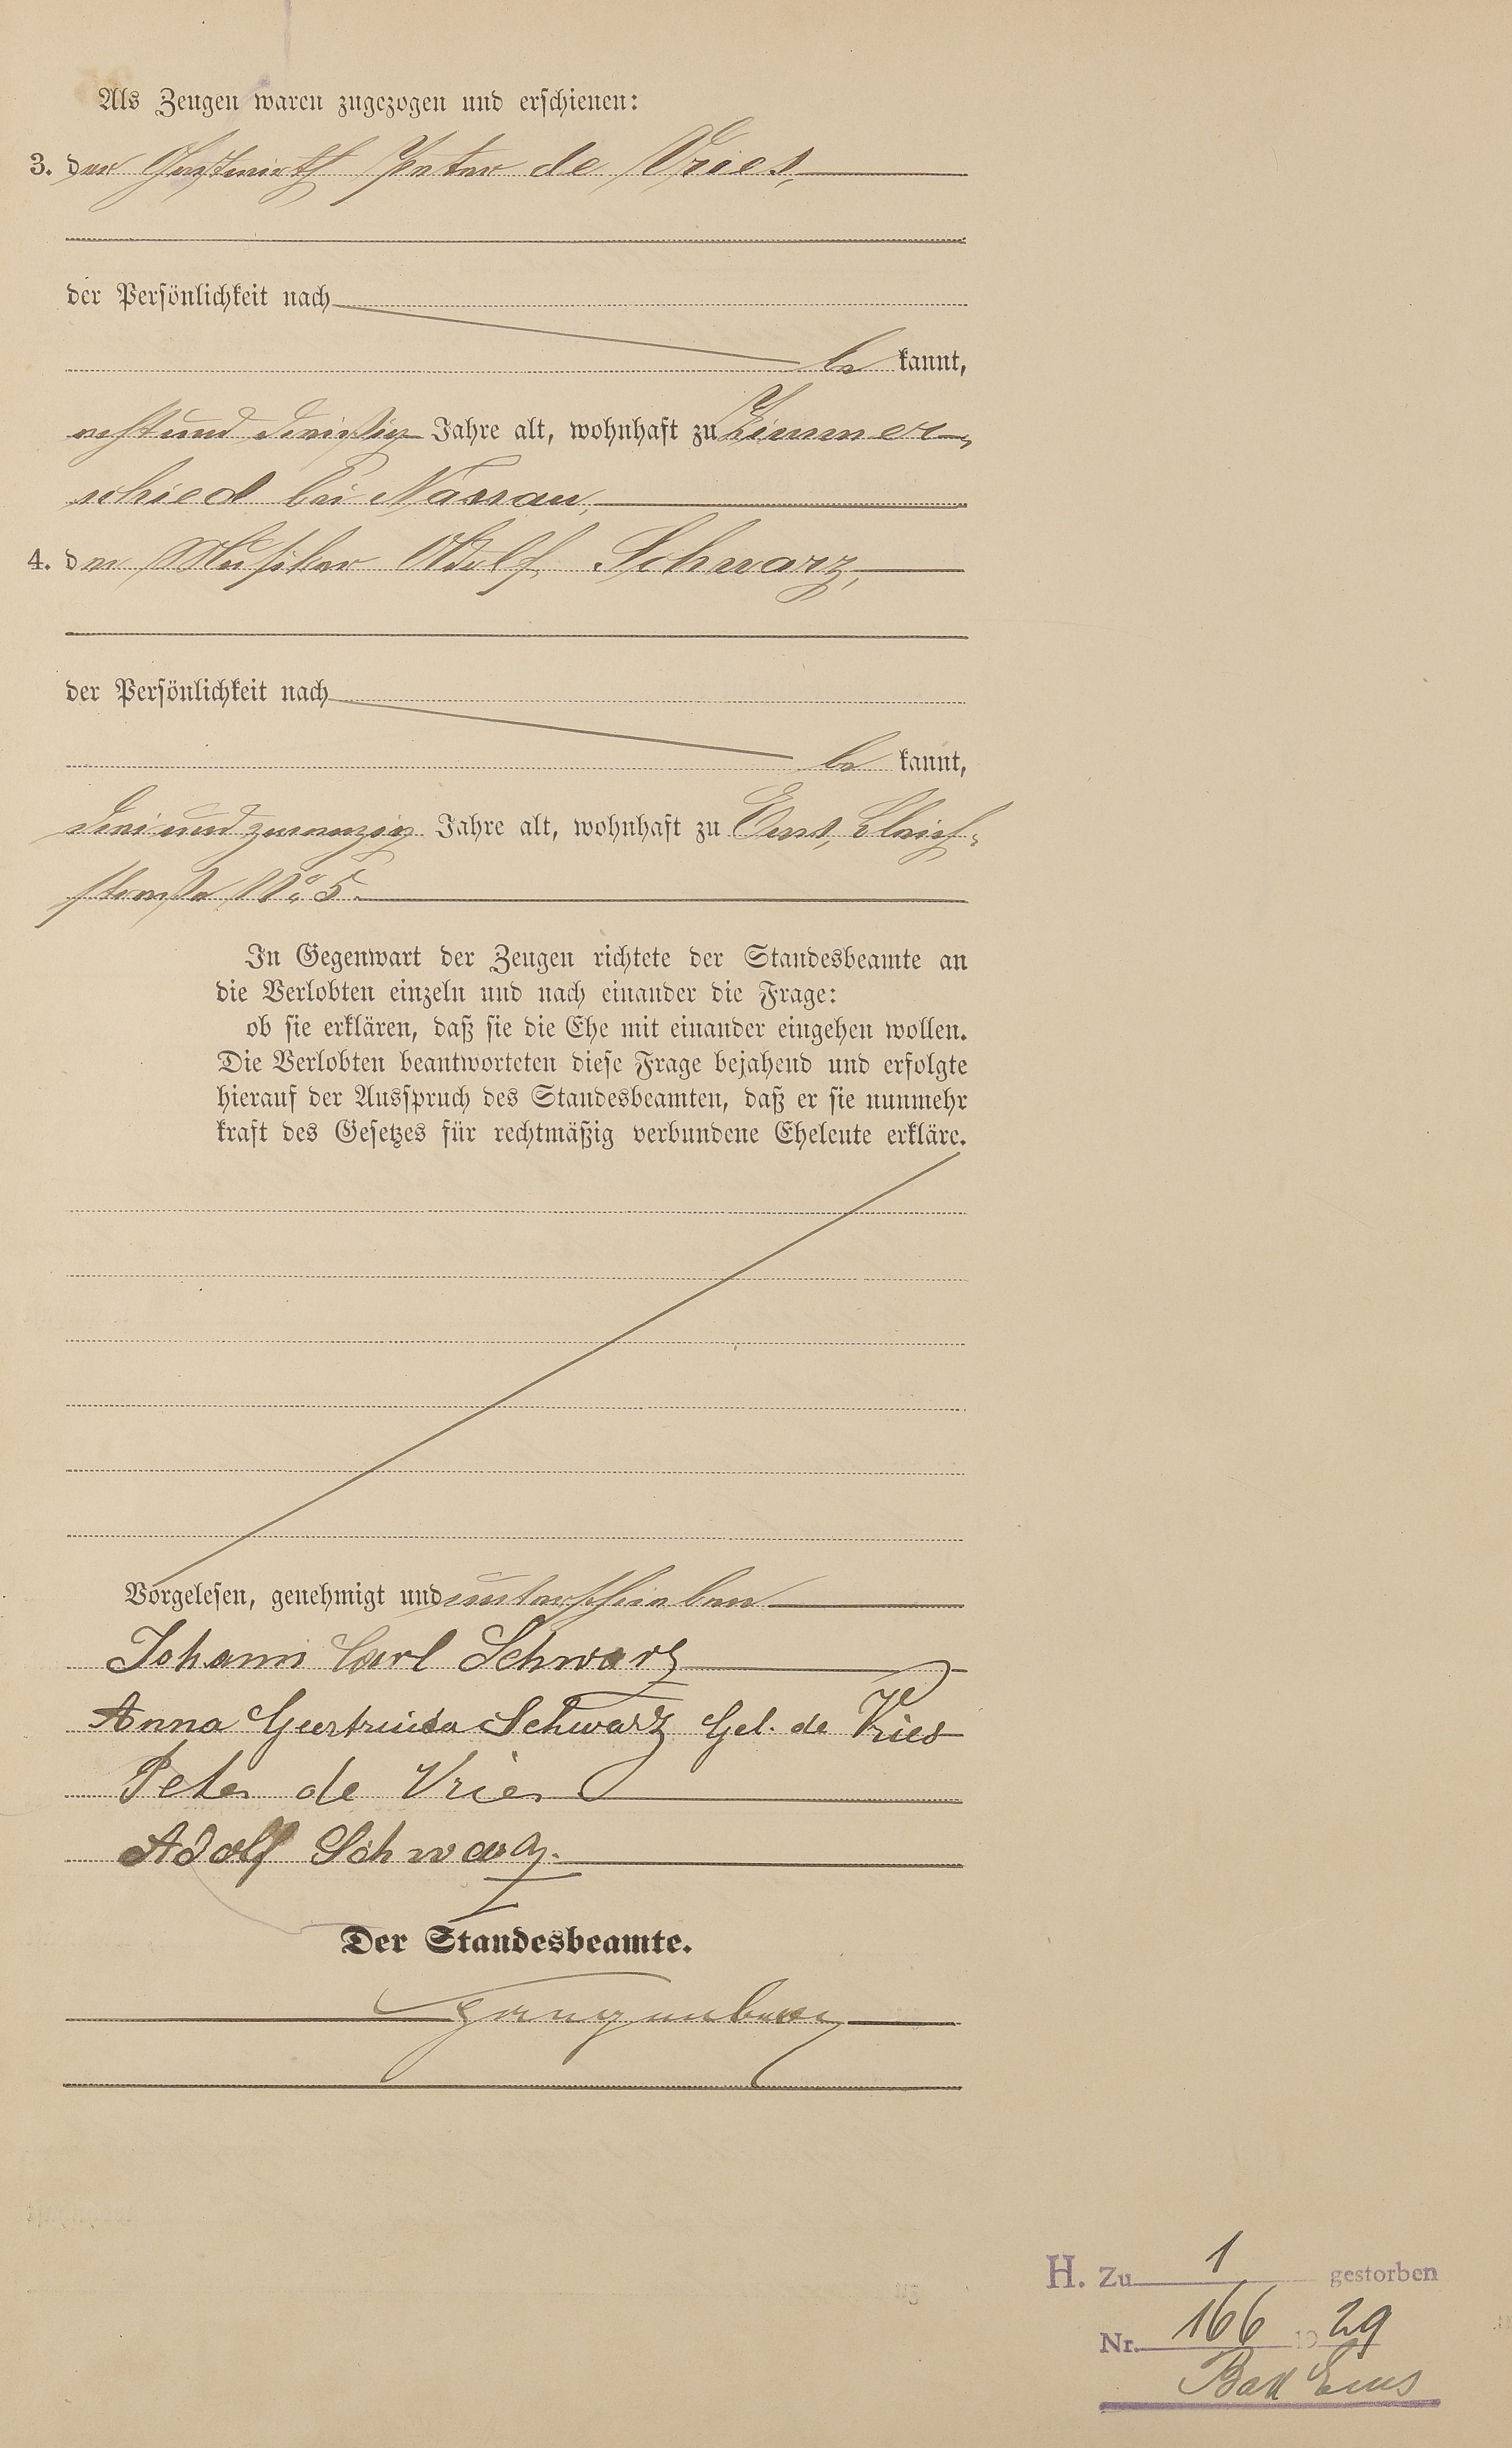 Als Zeugen waren zugezogen und erschienen:
3. der Gastwirth Peter de Vries,
der Persönlichkeit nach
be kannt,
achtund dreißig Jahre alt, wohnhaft zu Zimmer-
schied bei Nassau,
4. der Musiker Adolf Schwarz,
der Persönlichkeit nach
be kannt,
dreiundzwanzig Jahre alt, wohnhaft zu Ems, Bleich-
straße No 5.
In Gegenwart der Zeugen richtete der Standesbeamte an
die Verlobten einzeln und nach einander die Frage:
ob sie erklären, daß sie die Ehe mit einander eingehen wollen.
Die Verlobten beantworteten diese Frage bejahend und erfolgte
hierauf der Ausspruch des Standesbeamten, daß er sie nunmehr
kraft des Gesetzes für rechtmäßig verbundene Eheleute erkläre.
Vorgelesen, genehmigt und unterschrieben
Johann Carl Schwarz
Anna Gertruida Schwarz Geb. de Vries
Peter de Vries
Adolf Schwarz.
Der Standesbeamte.
H. Zu 1 gestorben
Nr. 166 19 29
Bad Ems